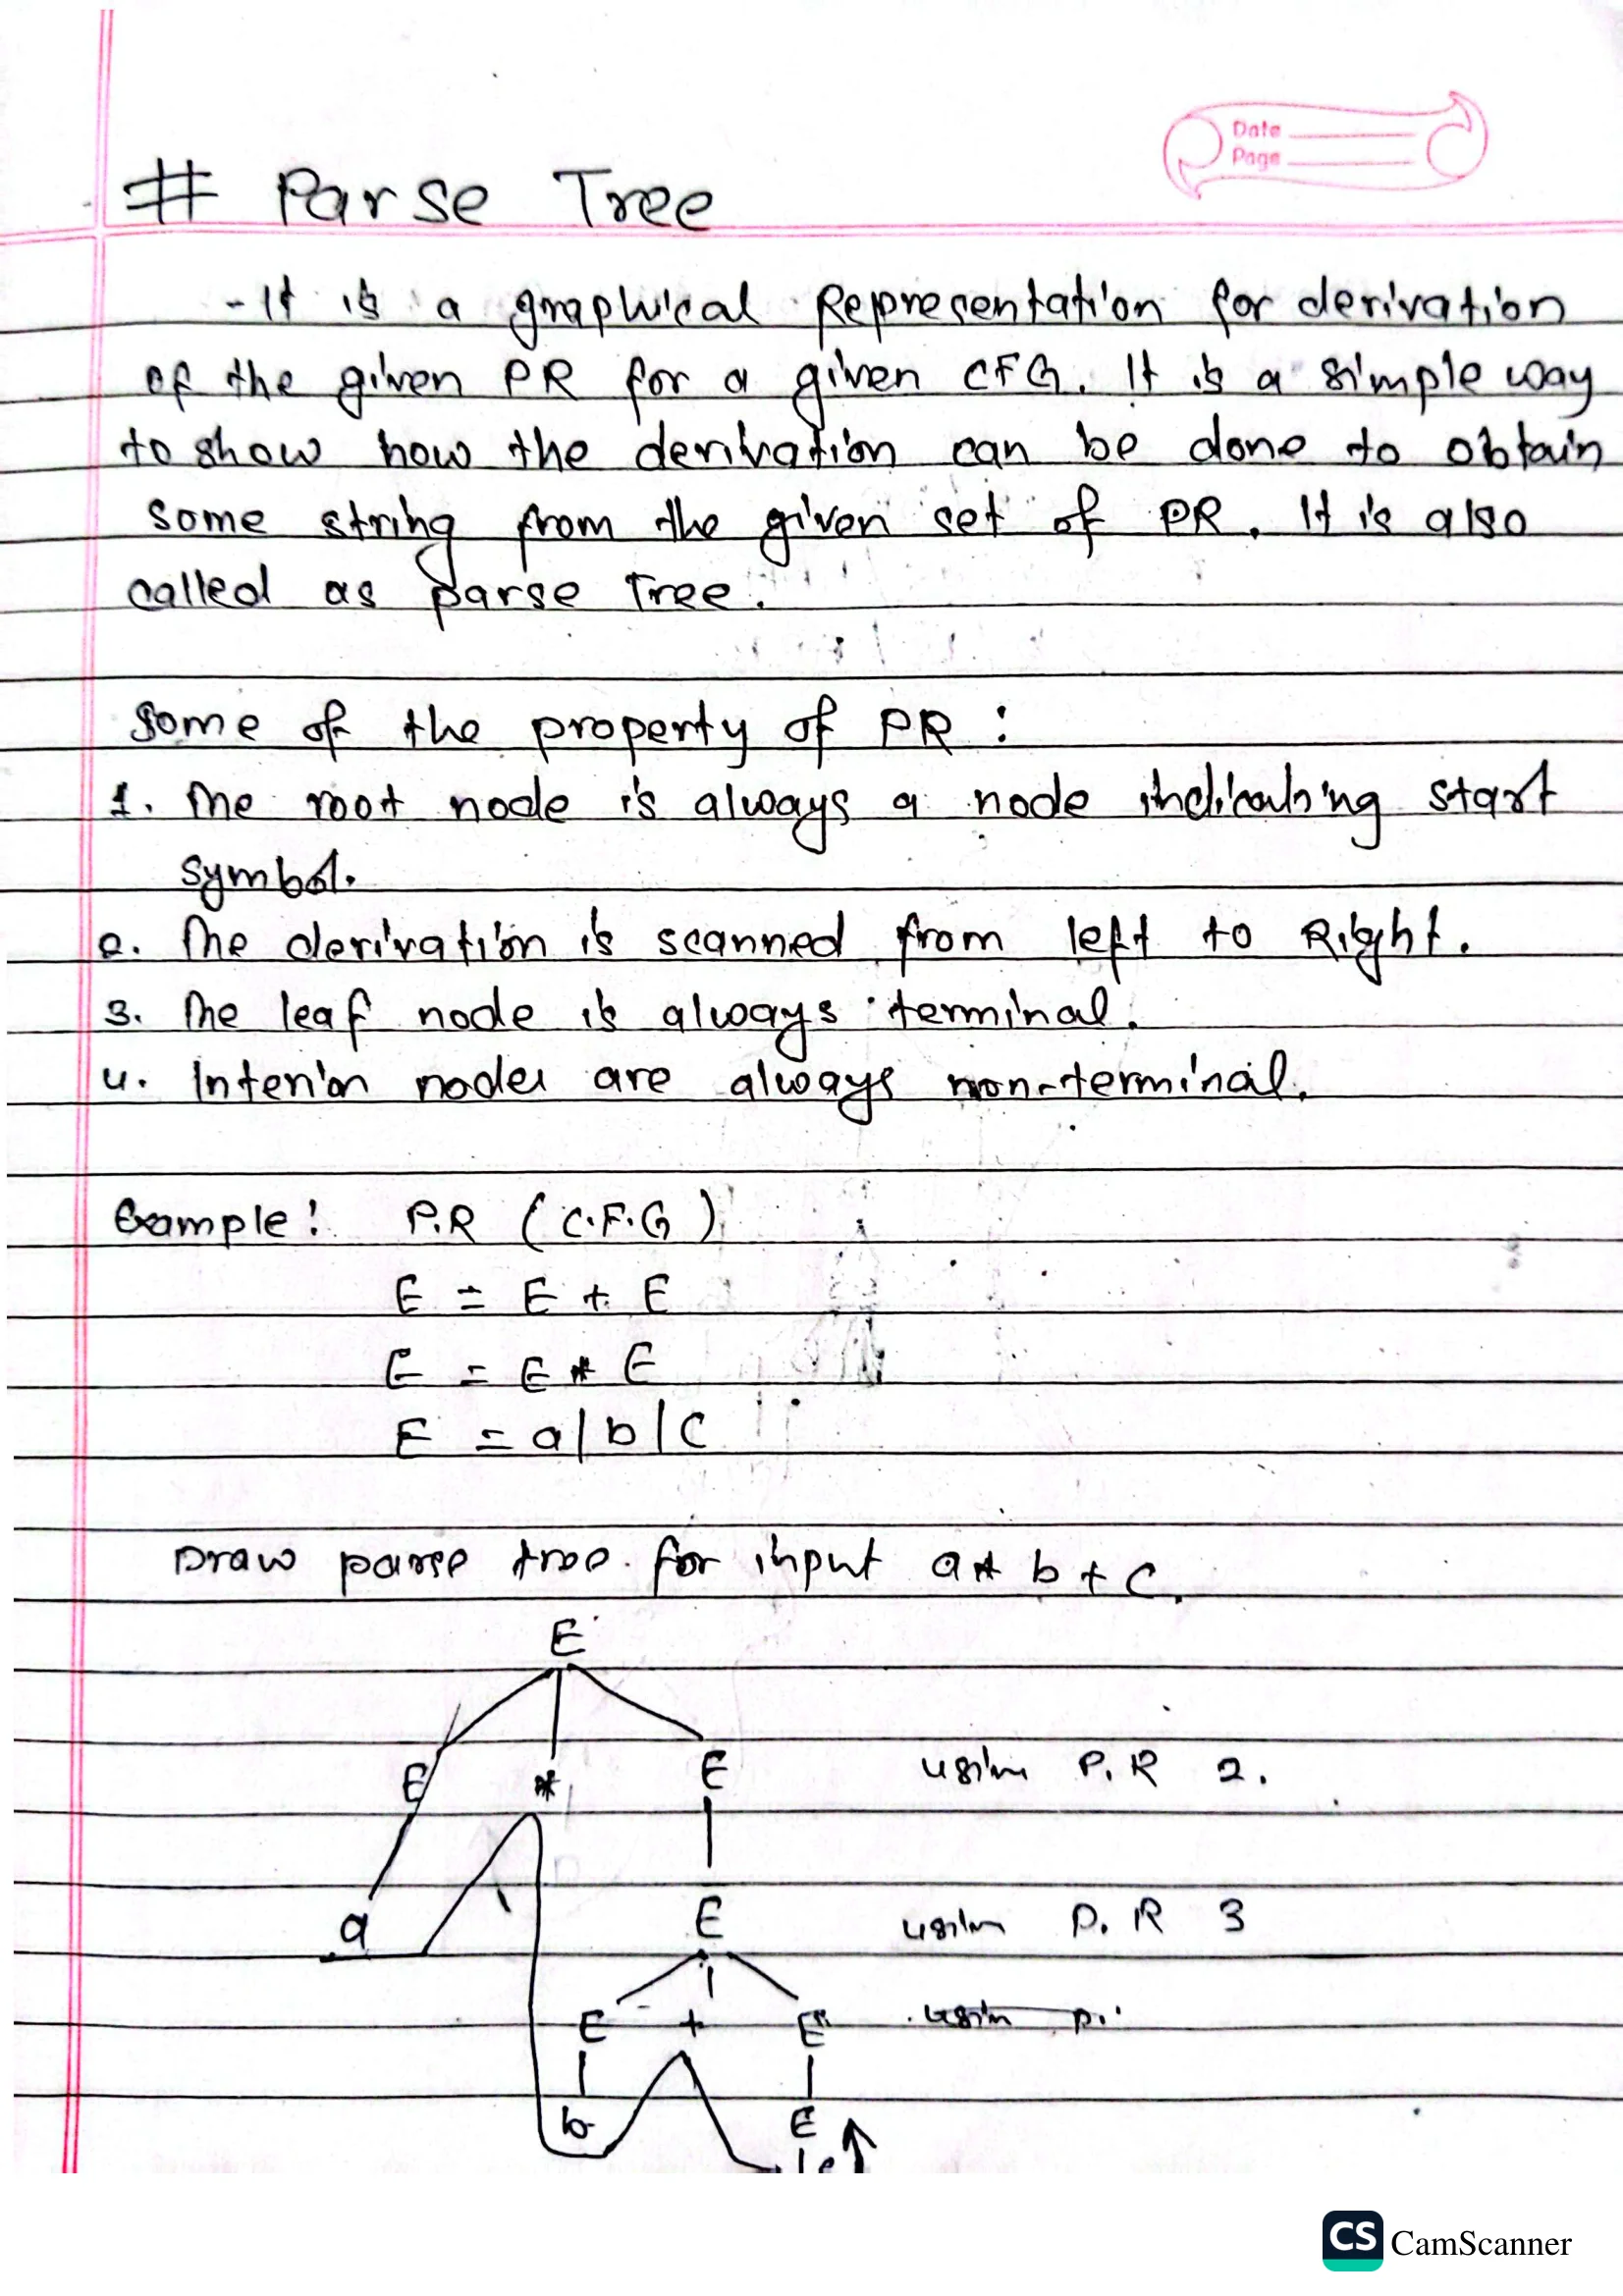 Date
Page
# Parse Tree
- It is a graphical Representation for derivation
of the given PR for a given CFG. It is a simple way
to show how the derivation can be done to obtain
some string from the given set of PR. It is also
called as parse Tree.
Some of the property of PR :
1. The root node is always a node indicating start
symbol.
2. The derivation is scanned from left to Right.
3. The leaf node is always terminal.
4. Interior nodes are always non-terminal.
Example: P.R (C.F.G)
E = E + E
E = E * E
E = a | b | c
Draw parse tree for input a * b + c.
E
E * E using P.R 2.
a E using P.R 3
E + E using P.
b E
c
CS CamScanner